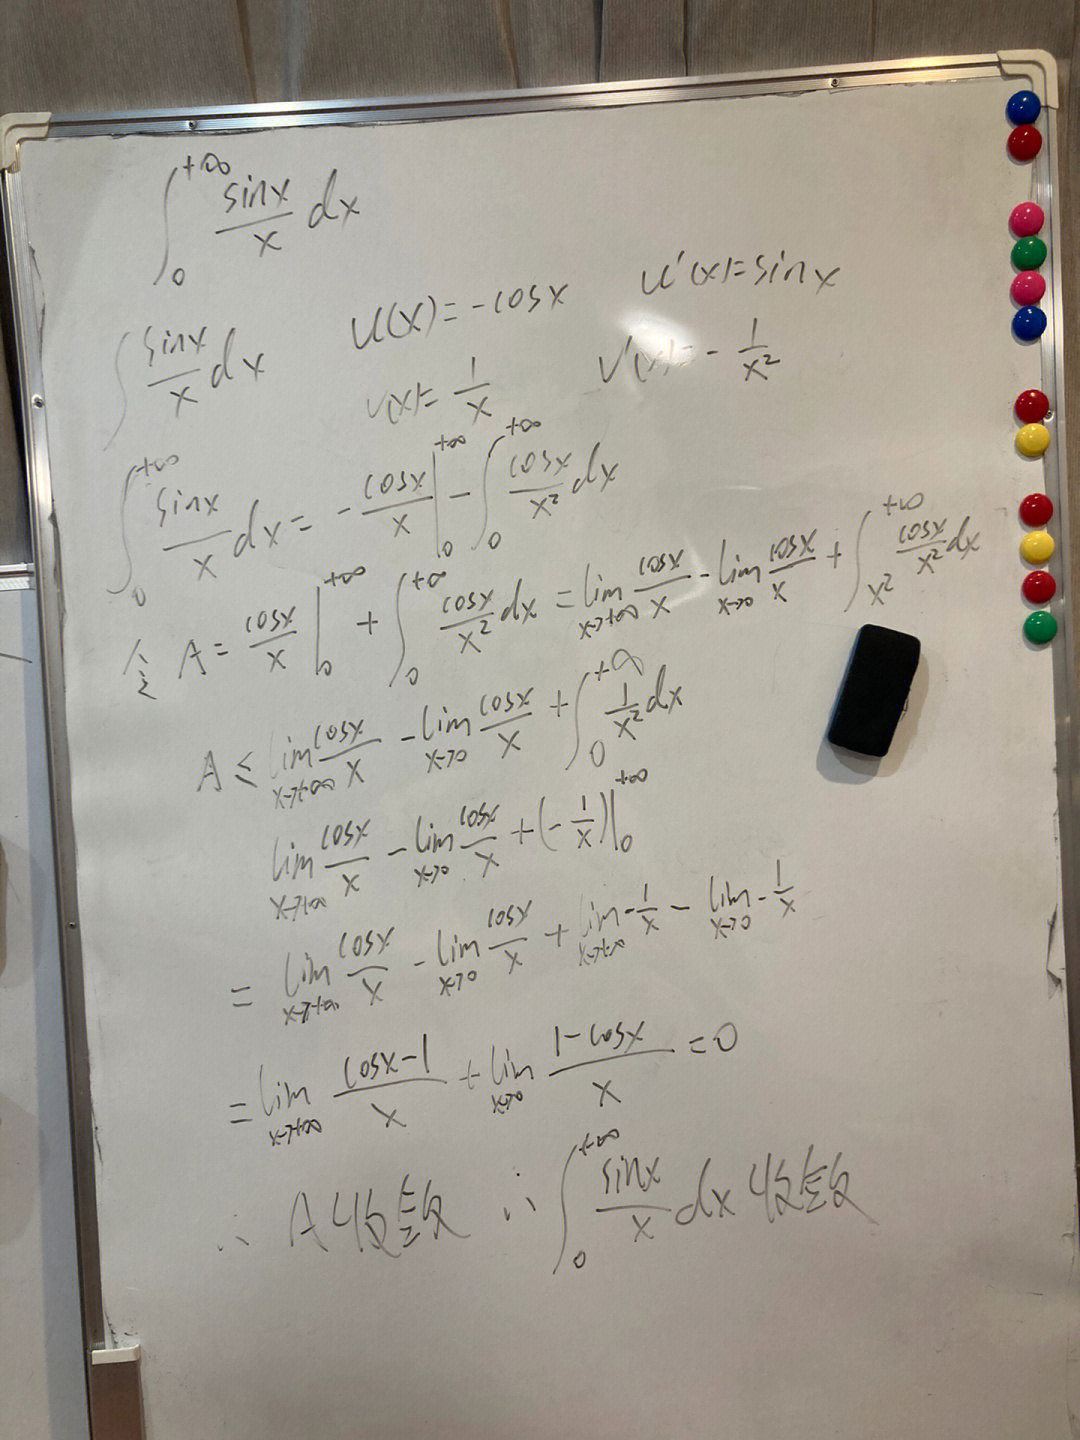 ∫₀^{+∞} sinx/x dx
∫ sinx/x dx u(x)=-cosx u'(x)=sinx
v(x)=1/x v'(x)=-1/x²
∫₀^{+∞} sinx/x dx = -cosx/x |₀^{+∞} - ∫₀^{+∞} cosx/x² dx
令 A = cosx/x |₀^{+∞} + ∫₀^{+∞} cosx/x² dx = lim_{x→+∞} cosx/x - lim_{x→0} cosx/x + ∫_{x²}^{+∞} cosx/x² dx
A ≤ lim_{x→+∞} cosx/x - lim_{x→0} cosx/x + ∫₀^{+∞} 1/x² dx
lim_{x→+∞} cosx/x - lim_{x→0} cosx/x + (-1/x)|₀^{+∞}
= lim_{x→+∞} cosx/x - lim_{x→0} cosx/x + lim_{x→+∞} -1/x - lim_{x→0} -1/x
= lim_{x→+∞} (cosx-1)/x + lim_{x→0} (1-cosx)/x = 0
∴ A收敛 ∴ ∫₀^{+∞} sinx/x dx 收敛